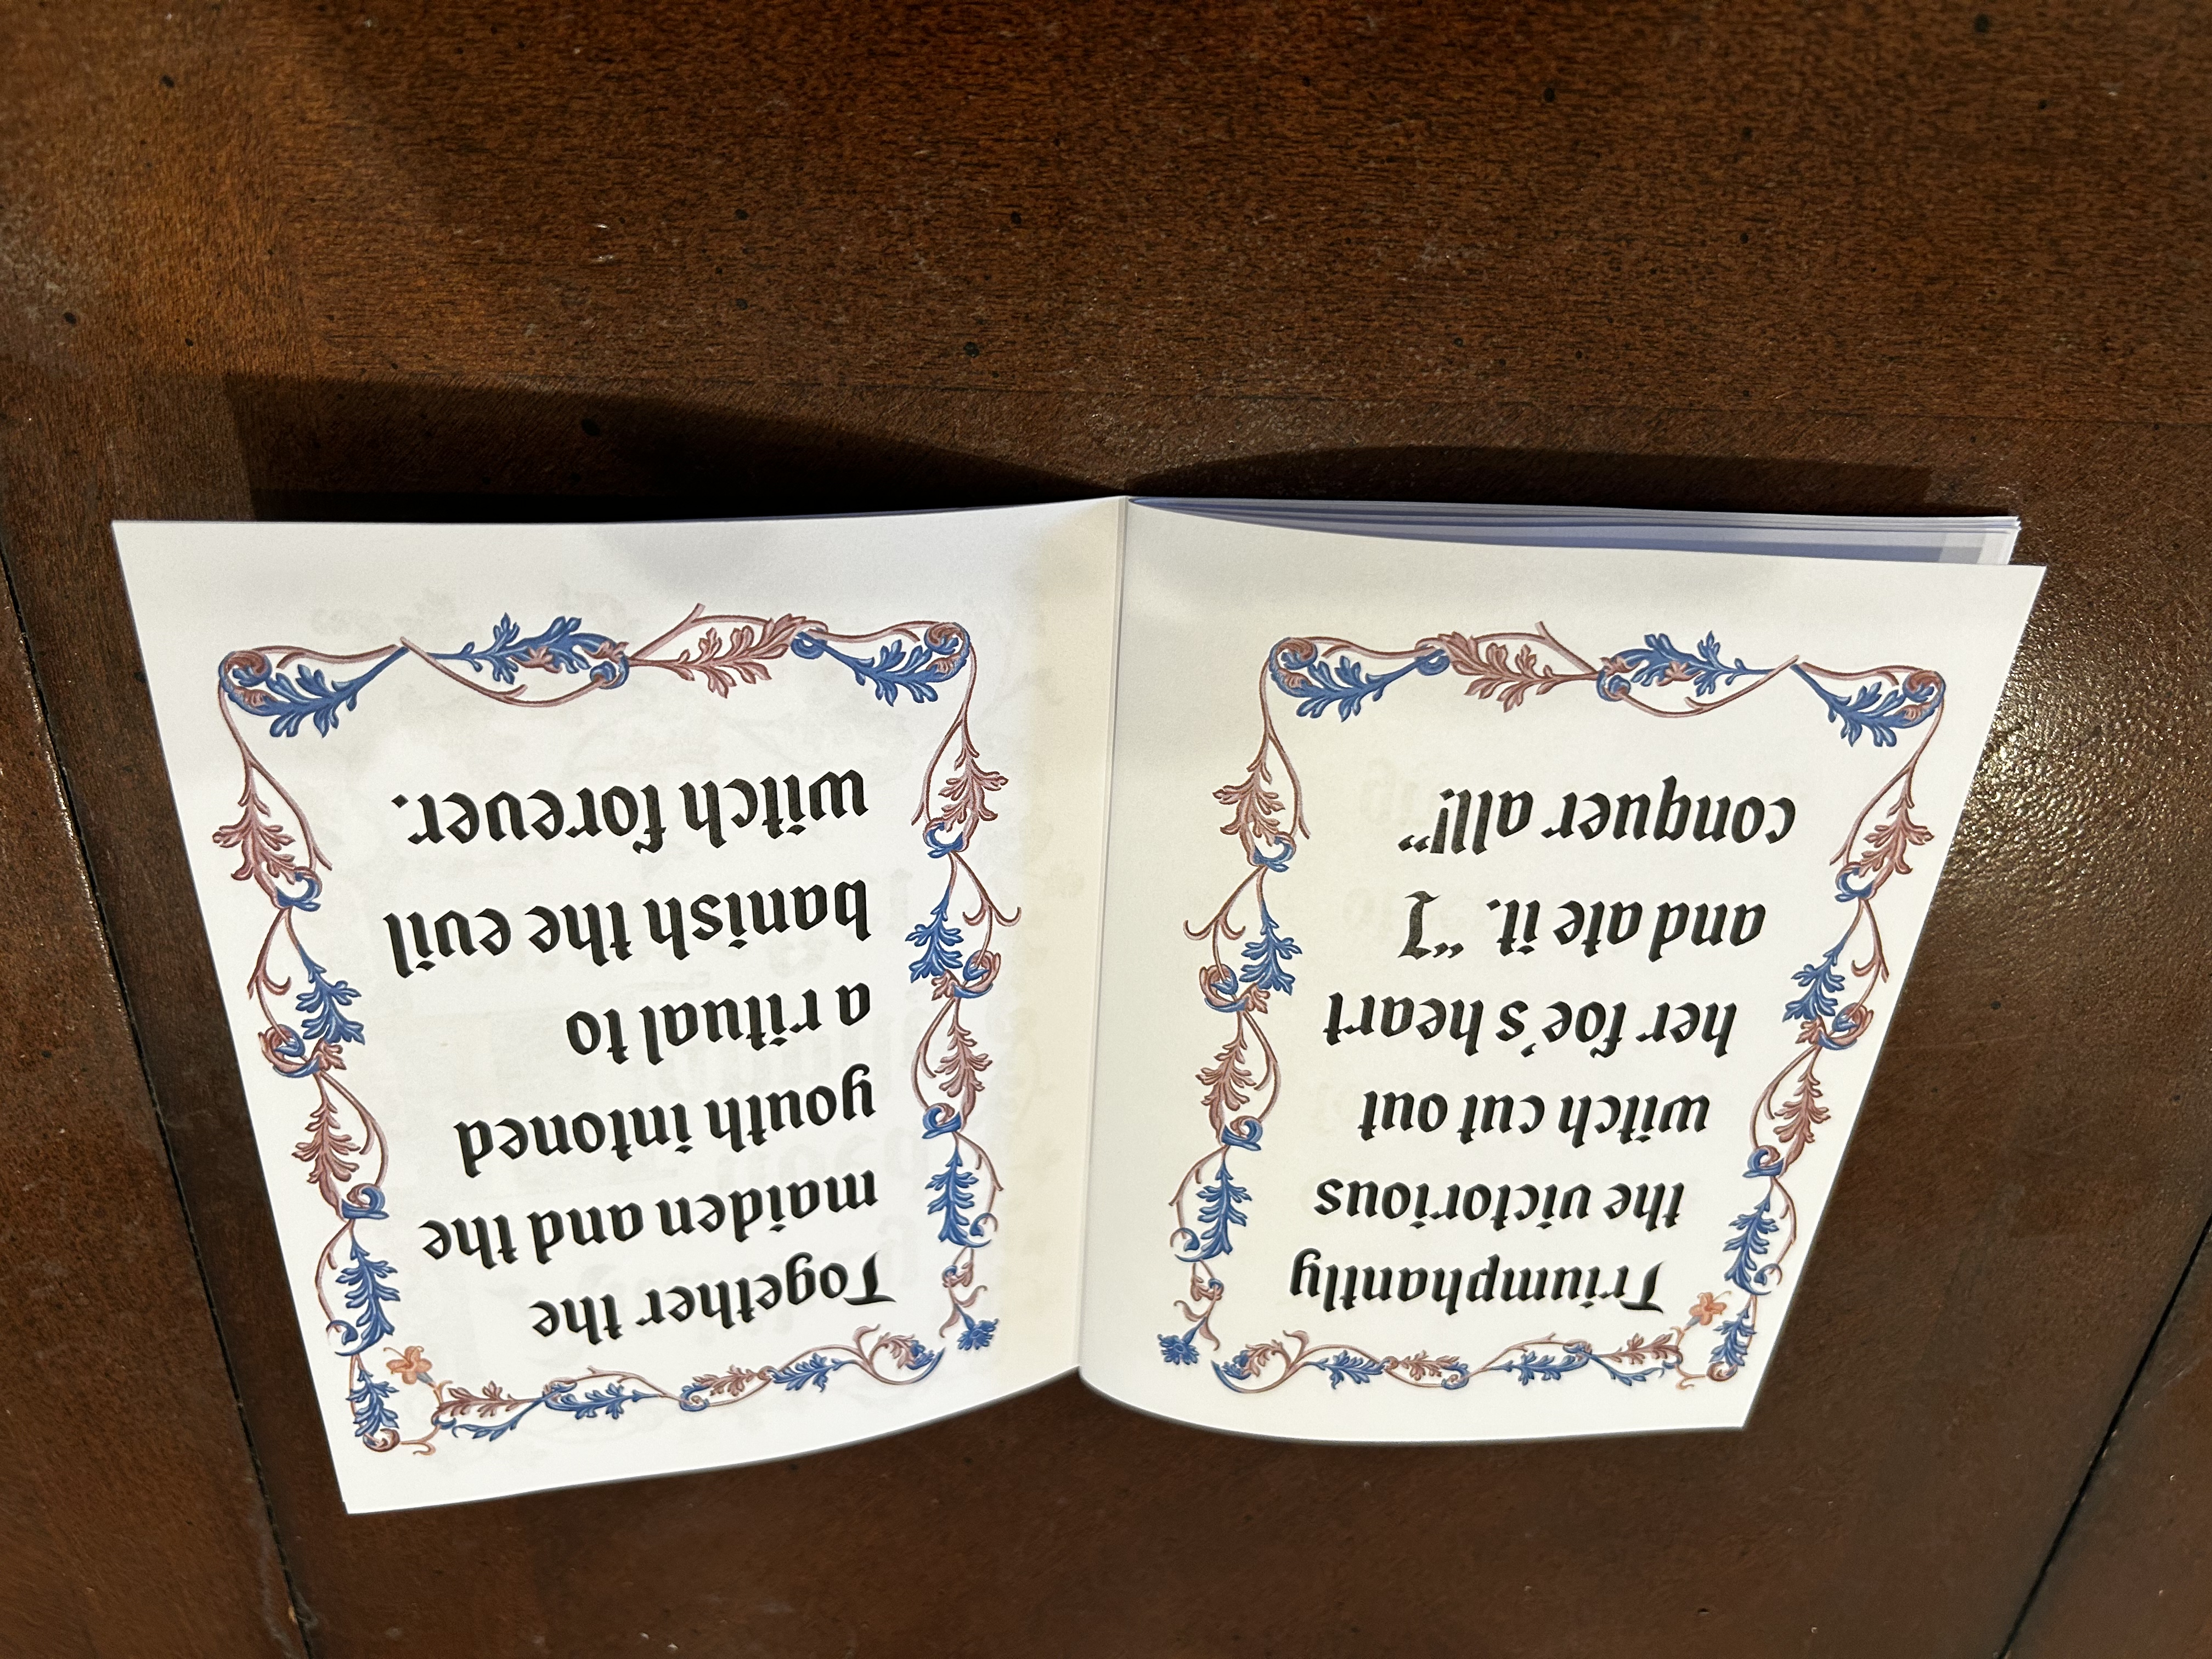 Triumphantly
the victorious
witch cut out
her foe's heart
and ate it. “I
conquer all!”
Together the
maiden and the
youth intoned
a ritual to
banish the evil
witch forever.